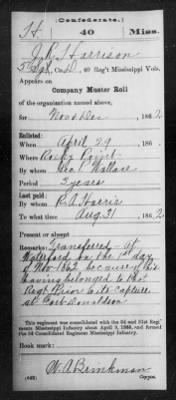 (Confederate.)
H 40 Miss.
Harrison
5 Sgt, Co. D, 40 Reg't Mississippi Vols.
Appears on
Company Muster Roll
of the organization named above,
for Nov & Dec, 1862
Enlisted:
When April 29, 186
Where Rocky Point
By whom Wallace
Period 3 years
Last paid:
By whom R A Harris
To what time Aug 31, 1862
Present or absent
Remarks: Transfered at
Waterford on the 1st day
of Nov 1862, because of his
having belonged to that
Regt prior to its Capture
at Fort Donaldson
This regiment was consolidated with the 3d and 31st Regiments Mississippi Infantry about April 9, 1865, and formed the 3d Consolidated Regiment Mississippi Infantry.
Book mark:
W. A. Brinkman
(642) Copyist.